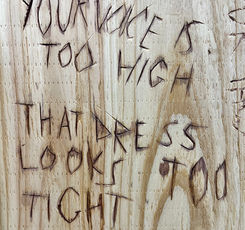 YOUR VOICE IS
TOO HIGH
THAT DRESS
LOOKS TOO
TIGHT